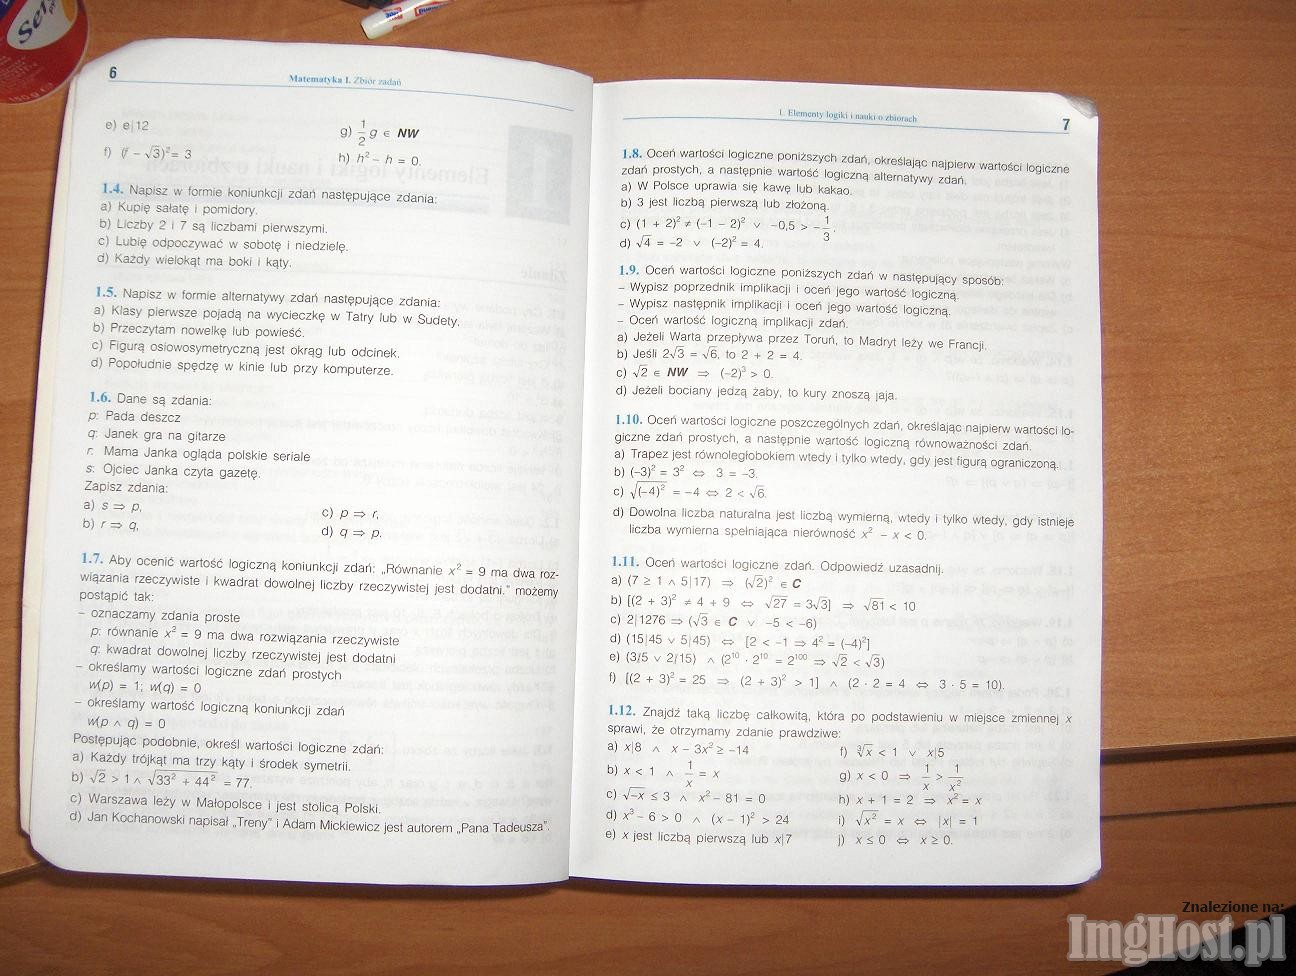 6
Matematyka I. Zbiór zadań
e) e|12
g) 1/2 g ∈ NW
f) (f − √3)² = 3
h) h² − h = 0.
1.4. Napisz w formie koniunkcji zdań następujące zdania:
a) Kupię sałatę i pomidory.
b) Liczby 2 i 7 są liczbami pierwszymi.
c) Lubię odpoczywać w sobotę i niedzielę.
d) Każdy wielokąt ma boki i kąty.
1.5. Napisz w formie alternatywy zdań następujące zdania:
a) Klasy pierwsze pojadą na wycieczkę w Tatry lub w Sudety.
b) Przeczytam nowelkę lub powieść.
c) Figurą osiowosymetryczną jest okrąg lub odcinek.
d) Popołudnie spędzę w kinie lub przy komputerze.
1.6. Dane są zdania:
p: Pada deszcz
q: Janek gra na gitarze
r: Mama Janka ogląda polskie seriale
s: Ojciec Janka czyta gazetę.
Zapisz zdania:
a) s ⇒ p,
c) p ⇒ r,
b) r ⇒ q,
d) q ⇒ p.
1.7. Aby ocenić wartość logiczną koniunkcji zdań: „Równanie x² = 9 ma dwa roz-
wiązania rzeczywiste i kwadrat dowolnej liczby rzeczywistej jest dodatni." możemy
postąpić tak:
– oznaczamy zdania proste
p: równanie x² = 9 ma dwa rozwiązania rzeczywiste
q: kwadrat dowolnej liczby rzeczywistej jest dodatni
– określamy wartości logiczne zdań prostych
w(p) = 1; w(q) = 0
– określamy wartość logiczną koniunkcji zdań
w(p ∧ q) = 0
Postępując podobnie, określ wartości logiczne zdań:
a) Każdy trójkąt ma trzy kąty i środek symetrii.
b) √2 > 1 ∧ √(33² + 44²) = 77.
c) Warszawa leży w Małopolsce i jest stolicą Polski.
d) Jan Kochanowski napisał „Treny" i Adam Mickiewicz jest autorem „Pana Tadeusza".
1. Elementy logiki i nauki o zbiorach
7
1.8. Oceń wartości logiczne poniższych zdań, określając najpierw wartości logiczne
zdań prostych, a następnie wartość logiczną alternatywy zdań.
a) W Polsce uprawia się kawę lub kakao.
b) 3 jest liczbą pierwszą lub złożoną.
c) (1 + 2)² ≠ (−1 − 2)² ∨ −0,5 > −1/3.
d) √4 = −2 ∨ (−2)² = 4.
1.9. Oceń wartości logiczne poniższych zdań w następujący sposób:
– Wypisz poprzednik implikacji i oceń jego wartość logiczną.
– Wypisz następnik implikacji i oceń jego wartość logiczną.
– Oceń wartość logiczną implikacji zdań.
a) Jeżeli Warta przepływa przez Toruń, to Madryt leży we Francji.
b) Jeśli 2√3 = √6, to 2 + 2 = 4.
c) √2 ∈ NW ⇒ (−2)³ > 0.
d) Jeżeli bociany jedzą żaby, to kury znoszą jaja.
1.10. Oceń wartości logiczne poszczególnych zdań, określając najpierw wartości lo-
giczne zdań prostych, a następnie wartość logiczną równoważności zdań.
a) Trapez jest równoległobokiem wtedy i tylko wtedy, gdy jest figurą ograniczoną.
b) (−3)² = 3² ⇔ 3 = −3.
c) √(−4)² = −4 ⇔ 2 < √6.
d) Dowolna liczba naturalna jest liczbą wymierną, wtedy i tylko wtedy, gdy istnieje
liczba wymierna spełniająca nierówność x² − x < 0.
1.11. Oceń wartości logiczne zdań. Odpowiedź uzasadnij.
a) (7 ≥ 1 ∧ 5|17) ⇒ (√2)² ∈ C
b) [(2 + 3)² ≠ 4 + 9 ⇔ √27 = 3√3] ⇒ √81 < 10
c) 2|1276 ⇒ (√3 ∈ C ∨ −5 < −6)
d) (15|45 ∨ 5|45) ⇔ [2 < −1 ⇒ 4² = (−4)²]
e) (3/5 ∨ 2/15) ∧ (2¹⁰ · 2¹⁰ = 2¹⁰⁰ ⇒ √2 < √3)
f) [(2 + 3)² = 25 ⇒ (2 + 3)² > 1] ∧ (2 · 2 = 4 ⇔ 3 · 5 = 10).
1.12. Znajdź taką liczbę całkowitą, która po podstawieniu w miejsce zmiennej x
sprawi, że otrzymamy zdanie prawdziwe:
a) x|8 ∧ x − 3x² ≥ −14
f) ∛x < 1 ∨ x|5
b) x < 1 ∧ 1/x = x
g) x < 0 ⇒ 1/x > 1/x²
c) √−x ≤ 3 ∧ x² − 81 = 0
h) x + 1 = 2 ⇒ x² = x
d) x³ − 6 > 0 ∧ (x − 1)² > 24
i) √x² = x ⇔ |x| = 1
e) x jest liczbą pierwszą lub x|7
j) x ≤ 0 ⇔ x ≥ 0.
Znalezione na:
ImgHost.pl